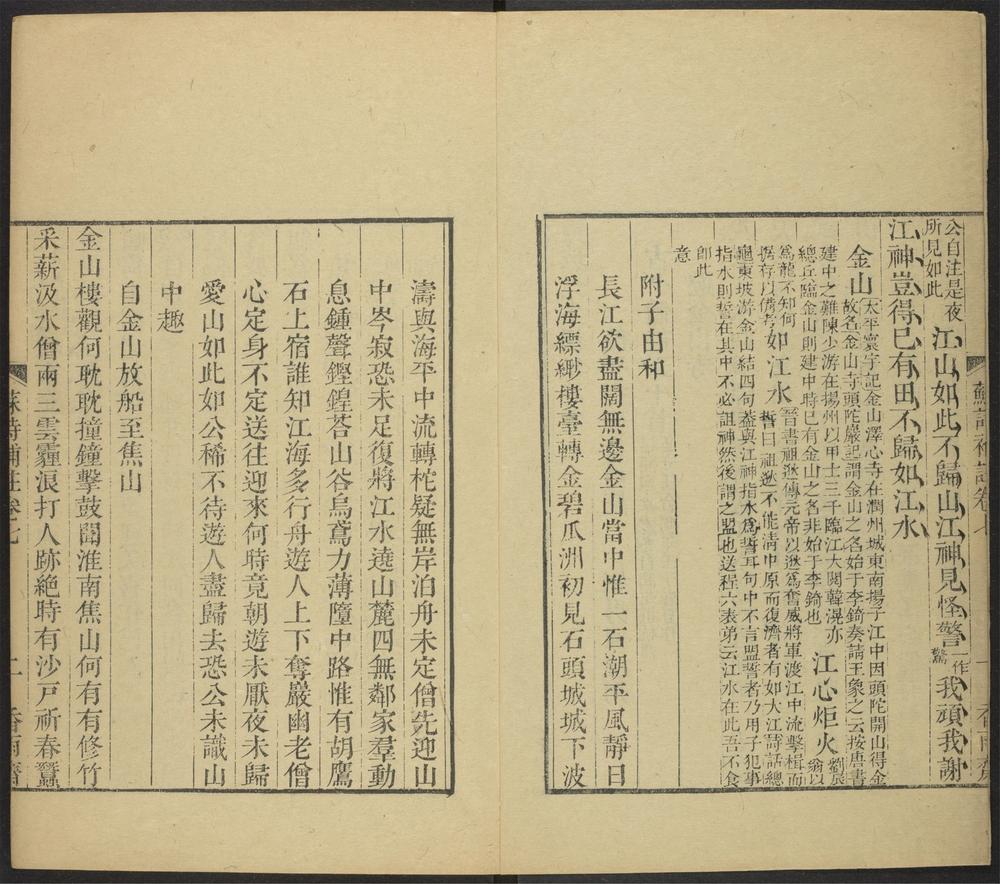 公自注是夜
所見如此
江山如此不歸山江神見怪警一作
驚
我頑我謝
江神豈得已有田不歸如江水
金山太平寰宇記金山澤心寺在潤州城東南揚子江中因頭陀開山得金
故名金山寺頭陀巖記謂金山之名始于李錡奏請王象之云按唐書
建中之難陳少游在揚州以甲士三千臨江大閱韓滉亦
總兵臨金山則建中時已有金山之名非始于李錡也
江心炬火
翁以
爲龍不知何
據存以備考
如江水
晉書祖逖傳元帝以逖爲奮威將軍渡江中流擊楫而
誓曰祖逖不能淸中原而復濟者有如大江詩話總
龜東坡游金山結四句葢與江神指水爲誓耳句中不言盟誓者乃用子犯事
指水則誓在其中不必詛神然後謂之盟也送程六表弟云江水在此吾不食
卽此
意
附子由和
長江欲盡闊無邊金山當中惟一石潮平風靜日
浮海縹緲樓臺轉金碧瓜洲初見石頭城城下波
濤與海平中流轉柁疑無岸泊舟未定僧先迎山
中岑寂恐未足復將江水遶山麓四無鄰家羣動
息鍾聲鏗鍠荅山谷烏鳶力薄墮中路惟有胡鷹
石上宿誰知江海多行舟遊人上下奪巖幽老僧
心定身不定送往迎來何時竟朝遊未厭夜未歸
愛山如此如公稀不待遊人盡歸去恐公未識山
中趣
自金山放船至焦山
金山樓觀何耽耽撞鐘擊鼓聞淮南焦山何有有修竹
采薪汲水僧兩三雲霾浪打人跡絶時有沙戸祈春蠶
蘇詩補註卷七
二
香雨齋